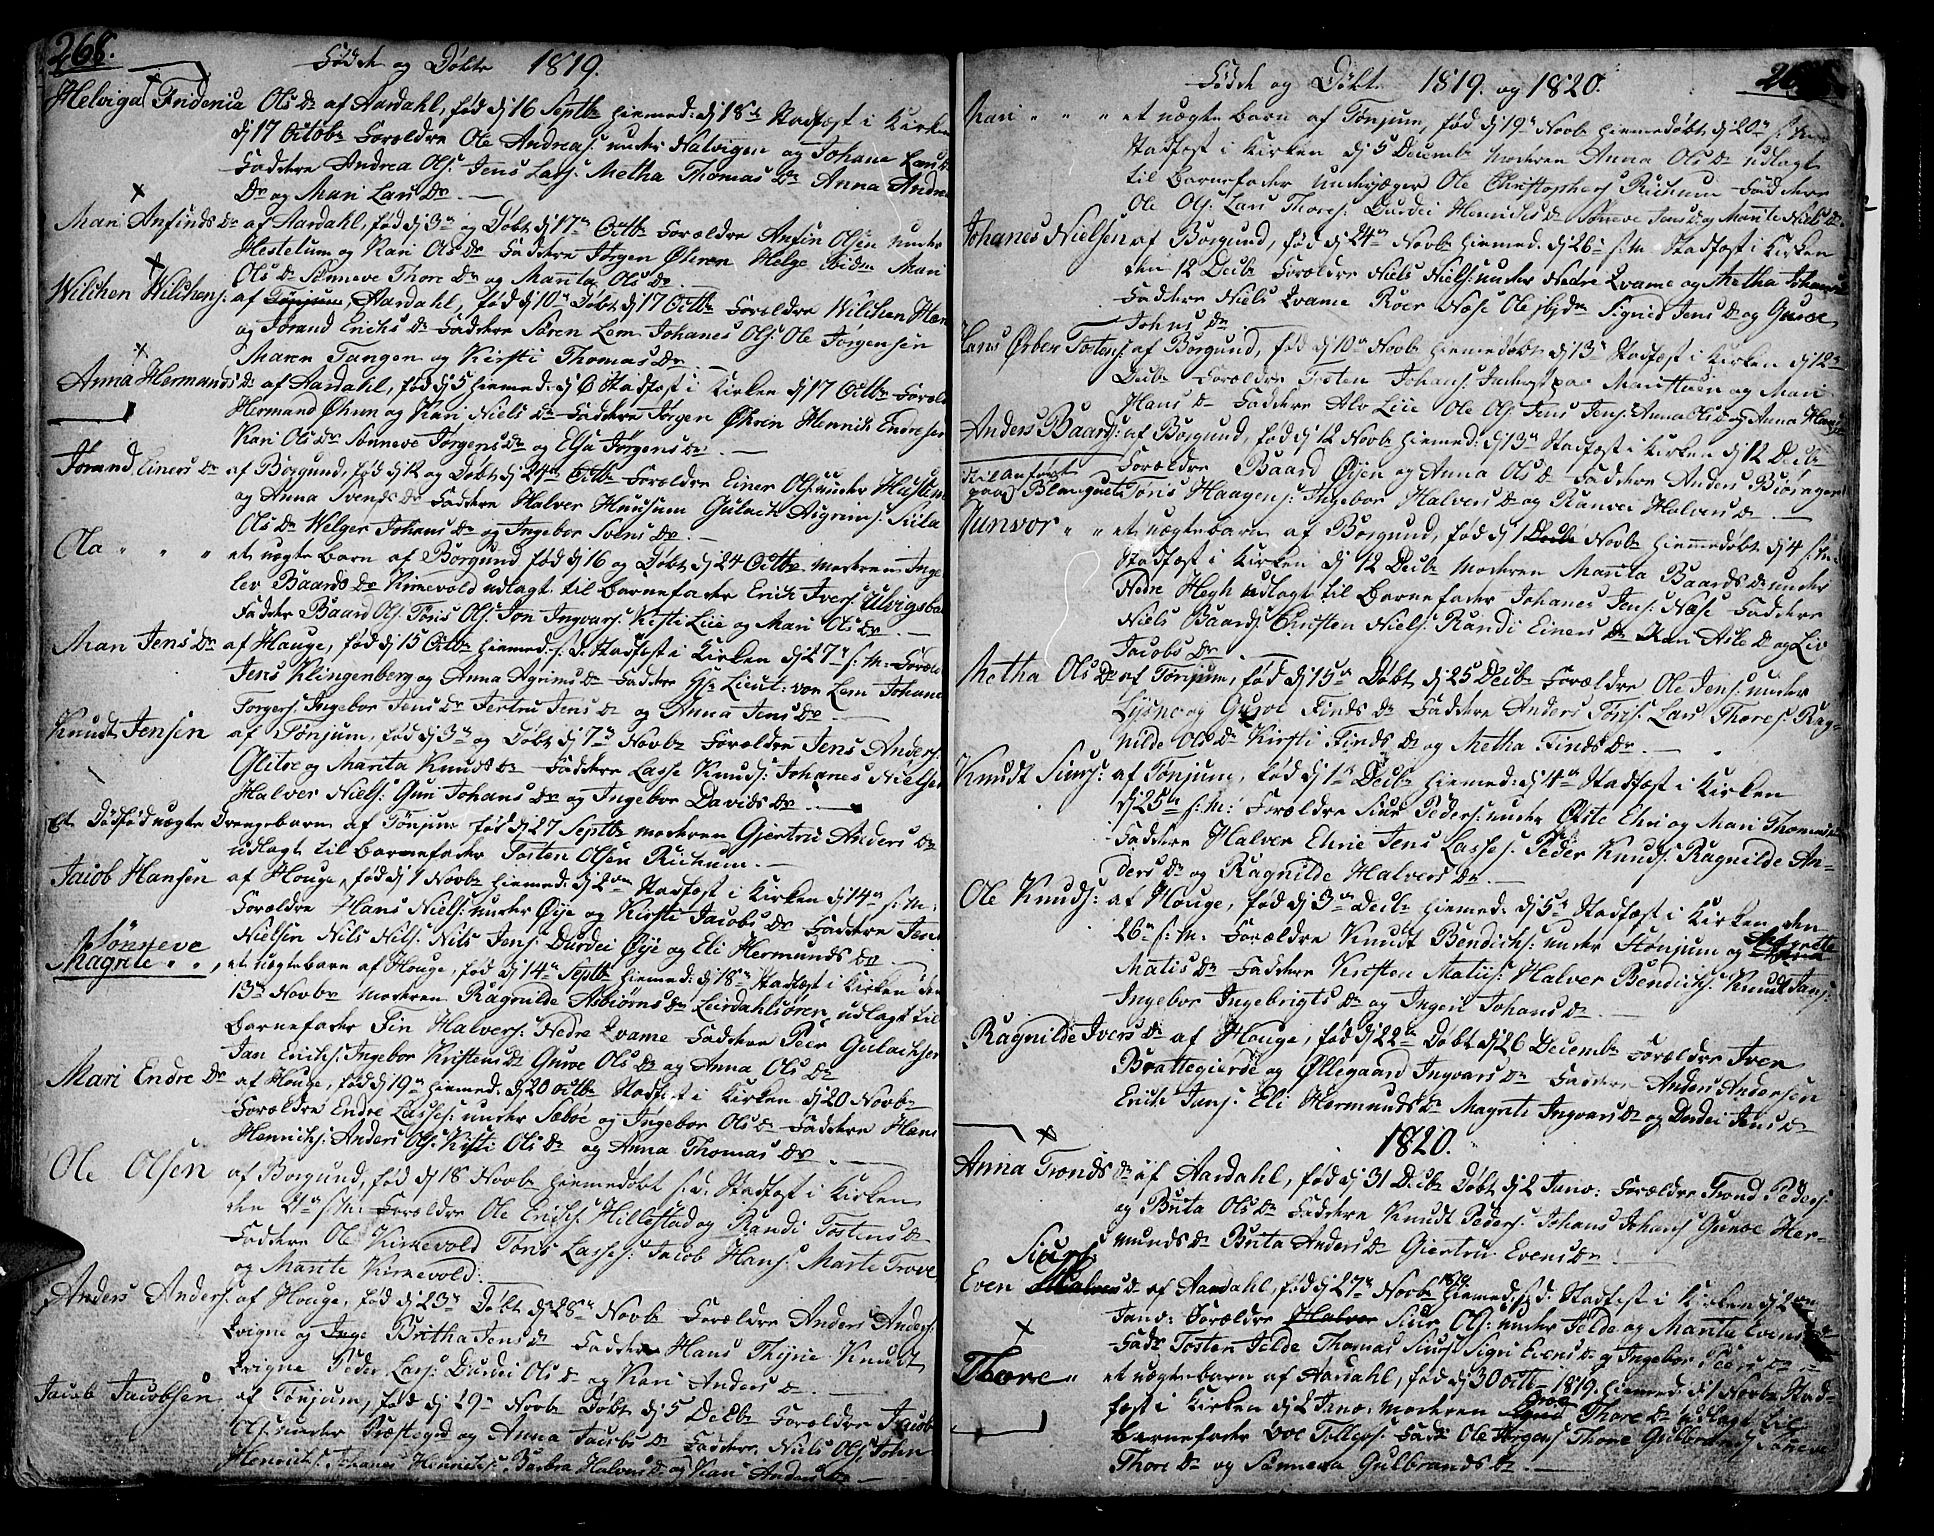 268.
Fødde og Døbte 1819.
Helviga Fridenia Ols Dr af Aardahl, fød dj 16 Septbr hiemed: dj 18de Stadfæst i Kirken
dj 17 Octobr Forældre Ole Andreas: under Nalvigen og Johane Lars Dr
Faddere Andrea Ols: Jens Lars: Metha Thomas Dr Anna Andre
Dr og Mari Lars Dr
Mari Anfinds Dr af Aardahl, fød dj 3de og Døbt dj 17de Octbr Forældre Anfin Olsen under
Hestetun og Kari Ols Dr Faddere Jørgen Øhren Helge ibidm Mari
Ols Dr Sønneve Thore Dr og Marita Ols Dr
Wilchen Wilchens: af Tønjum, Aardahl, fød dj 10de Døbt dj 17 Octbr Forældre Wilchen Hæren
og Jørand Erichs Dr Faddere Søren Lem Johanes Ols: Ole Jørgensen
Maren Tangen og Kirsti Thomas Dr
Anna Hermands Dr af Aardahl, fød dj 5 hiemed: dj 6 Stadfæst i Kirken dj 17 Octbr Foræld:
Hermand Øhren og Kari Niels Dr Faddere Jørgen Øhren Henrik Endresen
Kari Ols Dr Sønneve Jørgens Dr og Elsa Jørgens Dr
Jørand Einers Dr af Borgund, fød dj 12 og Døbt dj 24de Octbr Forældre Einer Ols: under Husum
og Anna Svends Dr Faddere Halver Huusum Gulach Asgrims: Siila
Ols Dr Welger Johans Dr og Ingebor Svens Dr
Ola " " " et uægte barn af Borgund fød dj 16 og Døbt dj 24 Octbr Moderen Inge
lev Baards Dr Kirkevold udlagt til Barnefader Erich Ivers: Ulvigsbac
Faddere Baard Ols: Tønis Ols: Jon Ingvars: Kisti Liie og Mari Ols Dr
Mari Jens Dr af Houge, fød dj 15 Octbr hiemed: s: D: Stadfæst i Kirken dj 27de s: M: Foræld
Jens Klingenberg og Anna Agrims Dr Faddere Hr Lieut: von Lem Johane
Torgers: Ingebor Jens Dr Jertru Jens Dr og Anna Jens Dr
Knudt Jensen af Tønjum, fød dj 3de og Døbt dj 7de Novbr Forældre Jens Anders:
Glitre og Marita Knuds Dr Faddere Lasse Knuds: Johanes Nielsen
Halver Niels: Gun Johans Dr og Ingebor Davids Dr
Et Dødfød uægte Drengebarn af Tønjum fød dj 27 Septbr moderen Gjertru Anders Dr
udlagt til barnefader Tosten Olsen Richum
Jacob Hansen af Houge, fød dj 1 Novbr hiemed: dj 2den Stadfæst i Kirken dj 14de s: M:
Forældre Hans Niels: under Øye og Kirsti Jacobs Dr Faddere Jens
Nielsen Nils Nils: Nils Jens: Durdei Øye og Eli Hermunds Dr
Sønneve
Magrite " ", et uægte barn af Houge, fød dj 14de Septbr hiemed: dj 18de Stadfæst i Kirken den
13de Novbr moderen Ragnilde Asbiørns Dr Leirdahlsøren udlagt til
Barnefader Fin Halvers: Nedre Qvame Faddere Peer Gulachsen
Jan Erichs: Ingebor Kristens Dr Gurve Ols Dr og Anna Ols Dr
Mari Endre Dr af Houge, fød dj 19de hiemed: dj 20 Octbr Stadfæst i Kirken dj 20 Novbr
Forældre Endre Lasses: under Sæboe og Ingebor Ols Dr Faddere Hans
Henrichs: Anders Ols: Kisti Ols Dr og Anna Thomas Dr
Ole Olsen af Borgund, fød dj 18 Novbr hiemedøbt s: d: Stadfæst i Kirken
den 21de s: M: Forældre Ole Erichs: Hillestad og Randi Tostens Dr
Faddere Ole Kirkevold Tønis Lasses: Jacob Hans: Marte Trove
og Marite Kirkevold:
Anders Anders: af Houge, fød dj 23de Døbt dj 28de Novbr Forældre Anders Anders:
Qvigne og Inge Britha Jens Dr Faddere Hans Thiyne Knudt
Qvigne Peder Lars: Durdei Ols Dr og Kari Anders Dr
Jacob Jacobsen af Tønjum, fød dj 29de Novbr Døbt dj 5 Decbr Forældre Jacob
Ols: under Præstegd og Anna Jacobs Dr Faddere Niels Ols: John
Henrichs: Johanes Henrichs: Barbra Halvers Dr og Kari Anders Dr
Fødde og Døbte 1819 og 1820.
Mari " " " et uægte barn af Tønjum, fød dj 19de Novbr hiemedøbt dj 20de s: M:
Stadfæst i Kirken dj 5 Decembr Moderen Anna Ols Dr udlagt
til Barnefader Underjæger Ole Christophers: Richum Faddere
Ole Ols: Lars Thores: Durdei Henrichs Dr Sønneve Jens Dr og Marite Niels Dr
Johanes Nielsen af Borgund, fød dj 24de Novbr hiemed: dj 26de s: M: Stadfæst i Kirken
den 12 Decbr Forældre Niels Niels: under Nedre Qvame og Metha Johans
Faddere Niels Qvame Roer Næse Ole ibidm Signed Jens Dr og Gurve
Johns Dr
Lars Ørben Tostens: af Borgund, fød dj 10de Novbr hiemedøbt dj 13de Stadfæst i Kirken dj 12te
Decbr Forældre Tosten Johans: Inderst paa Maristuen og Mari
Hans Dr Faddere Alv Liie Ole Ols: Jens Jens: Anna Ols Dr og Anna Hans Dr
Anders Baards: af Borgund, fød dj 12 Novbr hiemed: dj 13de Stadfæst i Kirken dj 12 Decbr
Forældre Baard Øyen og Anna Ols Dr Faddere Anders Biørager
Tønis Haagens: Ingebor Halvers Dr og Ranvei Halvers Dr
paa Blanquet
Gunvor " " et uægte barn af Borgund, fød dj 1 Novbr hiemmedøbt dj 4 s: M:
Stadfæst i Kirken dj 12 Decbr moderen Marita Baards Dr under
Nedre Hegh udlagt til Barnefader Johanes Jens: Næse Faddere
Niels Baards: Christen Niels: Randi Einers Dr Kari Asle Dr og Liv
Jacobs Dr
Metha Ols Dr af Tønjum, fød dj 15de Døbt dj 25 Decbr Forældre Ole Jens: under
Lysne og Gurve Finds Dr Faddere Anders Tøns: Lars Thores: Rag-
nilde Ols Dr Kirsti Finds Dr og Metha Finds Dr
Knudt Siurs: af Tønjum, fød dj 1de Decbr hiemed: dj 4de Stadfæst i Kirken
dj 25de s: M: Forældre Siur Peders: under Øvste Ehri og Mari Thomas
Faddere Halver Ehrie Jens Lasses: Peder Knuds: Ragnilde An-
ders Dr og Ragnilde Halvers Dr
Ole Knuds: af Houge, fød dj 3de Decbr hiemed: dj 5de Stadfæst i Kirken den
26de s: M: Forældre Knudt Bendichs: under Stønjum og Magrite
Matis Dr Faddere Kristen Matiis: Halver Bendichs: Knudt Jans:
Ingebor Ingebrigts Dr og Ingeri Johans Dr
Ragnilde Ivers Dr af Houge, fød dj 22de Døbt dj 26 Decembr Forældre Iver
Brattegierde og Øllegaard Ingvars Dr Faddere Anders Andersen
Erich Jans: Eli Hermunds Dr Magrite Ingvars Dr og Dordei Jens Dr
1820.
Anna Tronds Dr af Aardahl, fød dj 31 Decbr Døbt dj 2 Janv: Forældre Trond Peders:
og Brita Ols Dr Faddere Knudt Peders: Johans Johans: Gunve Her-
munds Dr Brita Anders Dr Giertru Evens Dr
Siurs:
Even Halvers Dr af Aardahl, fød dj 27de Novbr 1819 hiemed: s: d: Stadfæst i Kirken dj 2den
Janv: Forældre Halver Siur Ols: under Jelde og Marite Evens Dr
Fadr Tosten Jelde Thomas Siurs: Sigri Evens Dr og Ingebor Peers Dr
Thore " et uægte barn af Aardahl, fød dj 30 Octbr 1819. hiemed: dj 1 Novbr Stad-
fæst i Kirken dj 2 Janv: moderen Thore Dr udlagt til
barnefader Ole Tollefs: Fadr Ole Jørgens: Thore Gulbrands: Sønneve
Thore Dr og Sønneva Gulbrands Dr